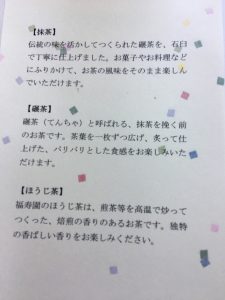 【抹茶】
伝統の味を活かしてつくられた碾茶を、石臼
で丁寧に仕上げました。お菓子やお料理など
にふりかけて、お茶の風味をそのまま楽しん
でいただけます。
【碾茶】
碾茶（てんちゃ）と呼ばれる、抹茶を挽く前
のお茶です。茶葉を一枚ずつ広げ、炙って仕
上げた、パリパリとした食感をお楽しみいた
だけます。
【ほうじ茶】
福寿園のほうじ茶は、煎茶等を高温で炒って
つくった、焙煎の香りのあるお茶です。独特
の香ばしい香りをお楽しみください。